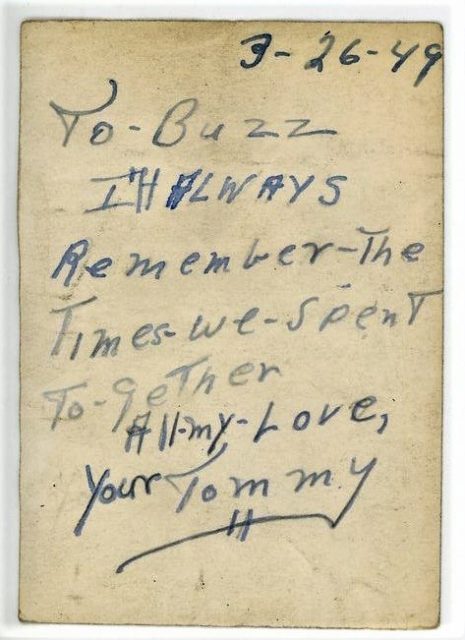 3-26-49
To-Buzz
I'll ALWAYS
Remember-The
Times-we-spenT
To-geTher
All-my-Love,
Your Tommy